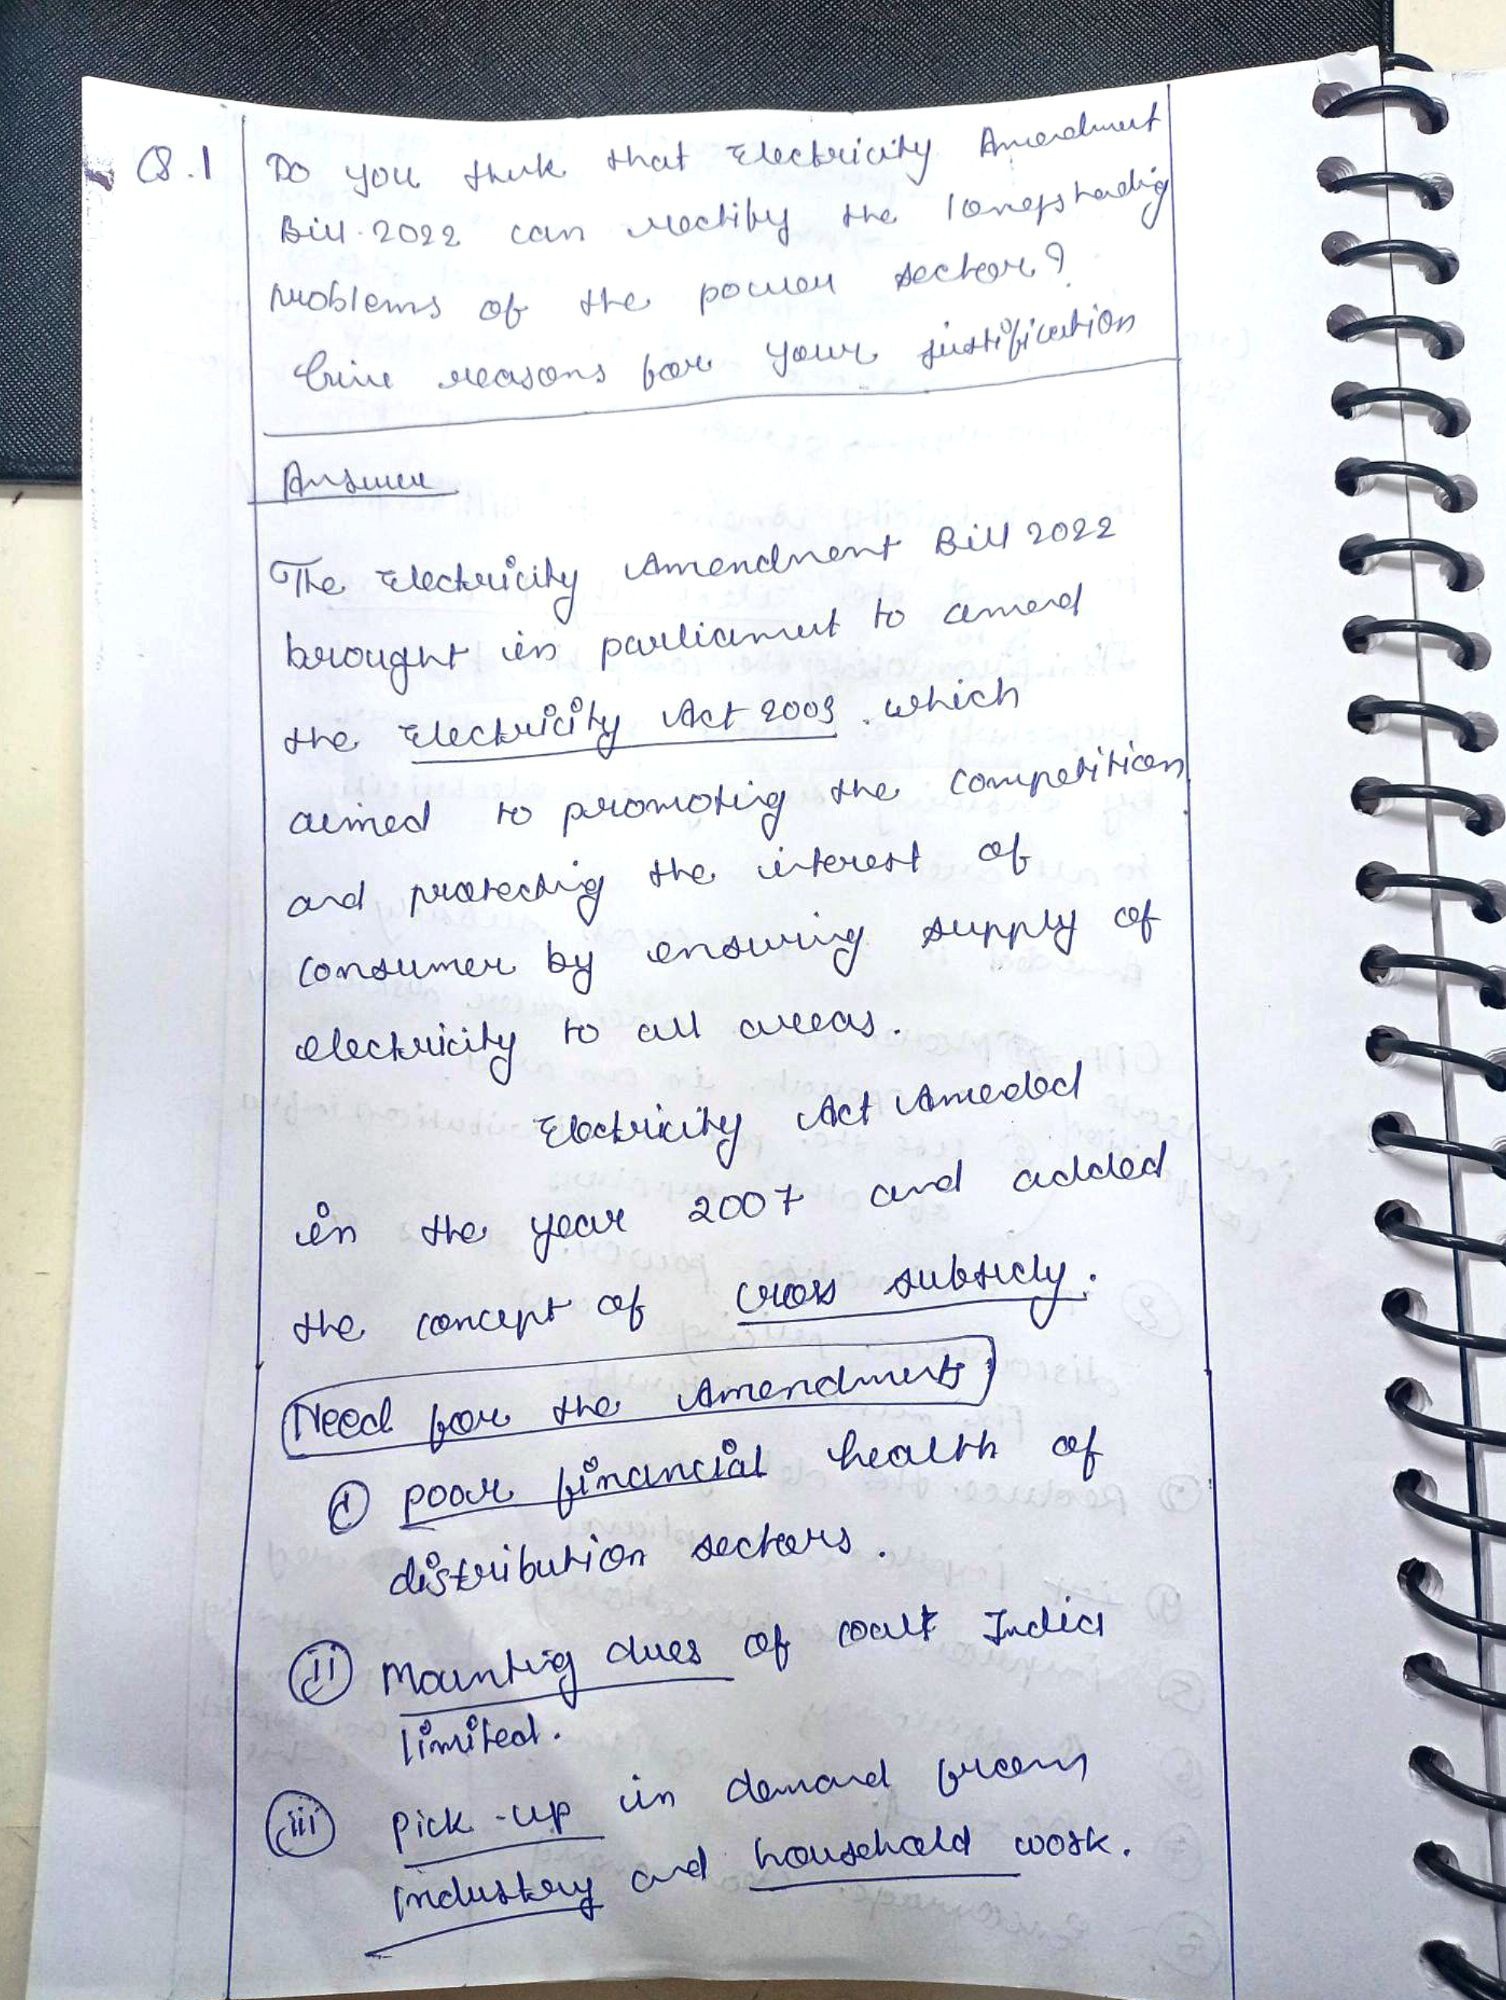 Q.1 Do you think that Electricity Amendment
Bill 2022 can rectify the longstanding
problems of the power sector?
Give reasons for your justification
Answer
The Electricity Amendment Bill 2022
brought in parliament to amend
the Electricity Act 2003 which
aimed to promoting the competition
and protecting the interest of
consumer by ensuring supply of
electricity to all areas.
Electricity Act Ameded
in the year 2007 and added
the concept of cross subsidy.
Need for the Amendment
i) poor financial health of
distribution sectors.
ii) Mounting dues of coal India
limited.
iii) Pick-up in demand from
industry and household work.